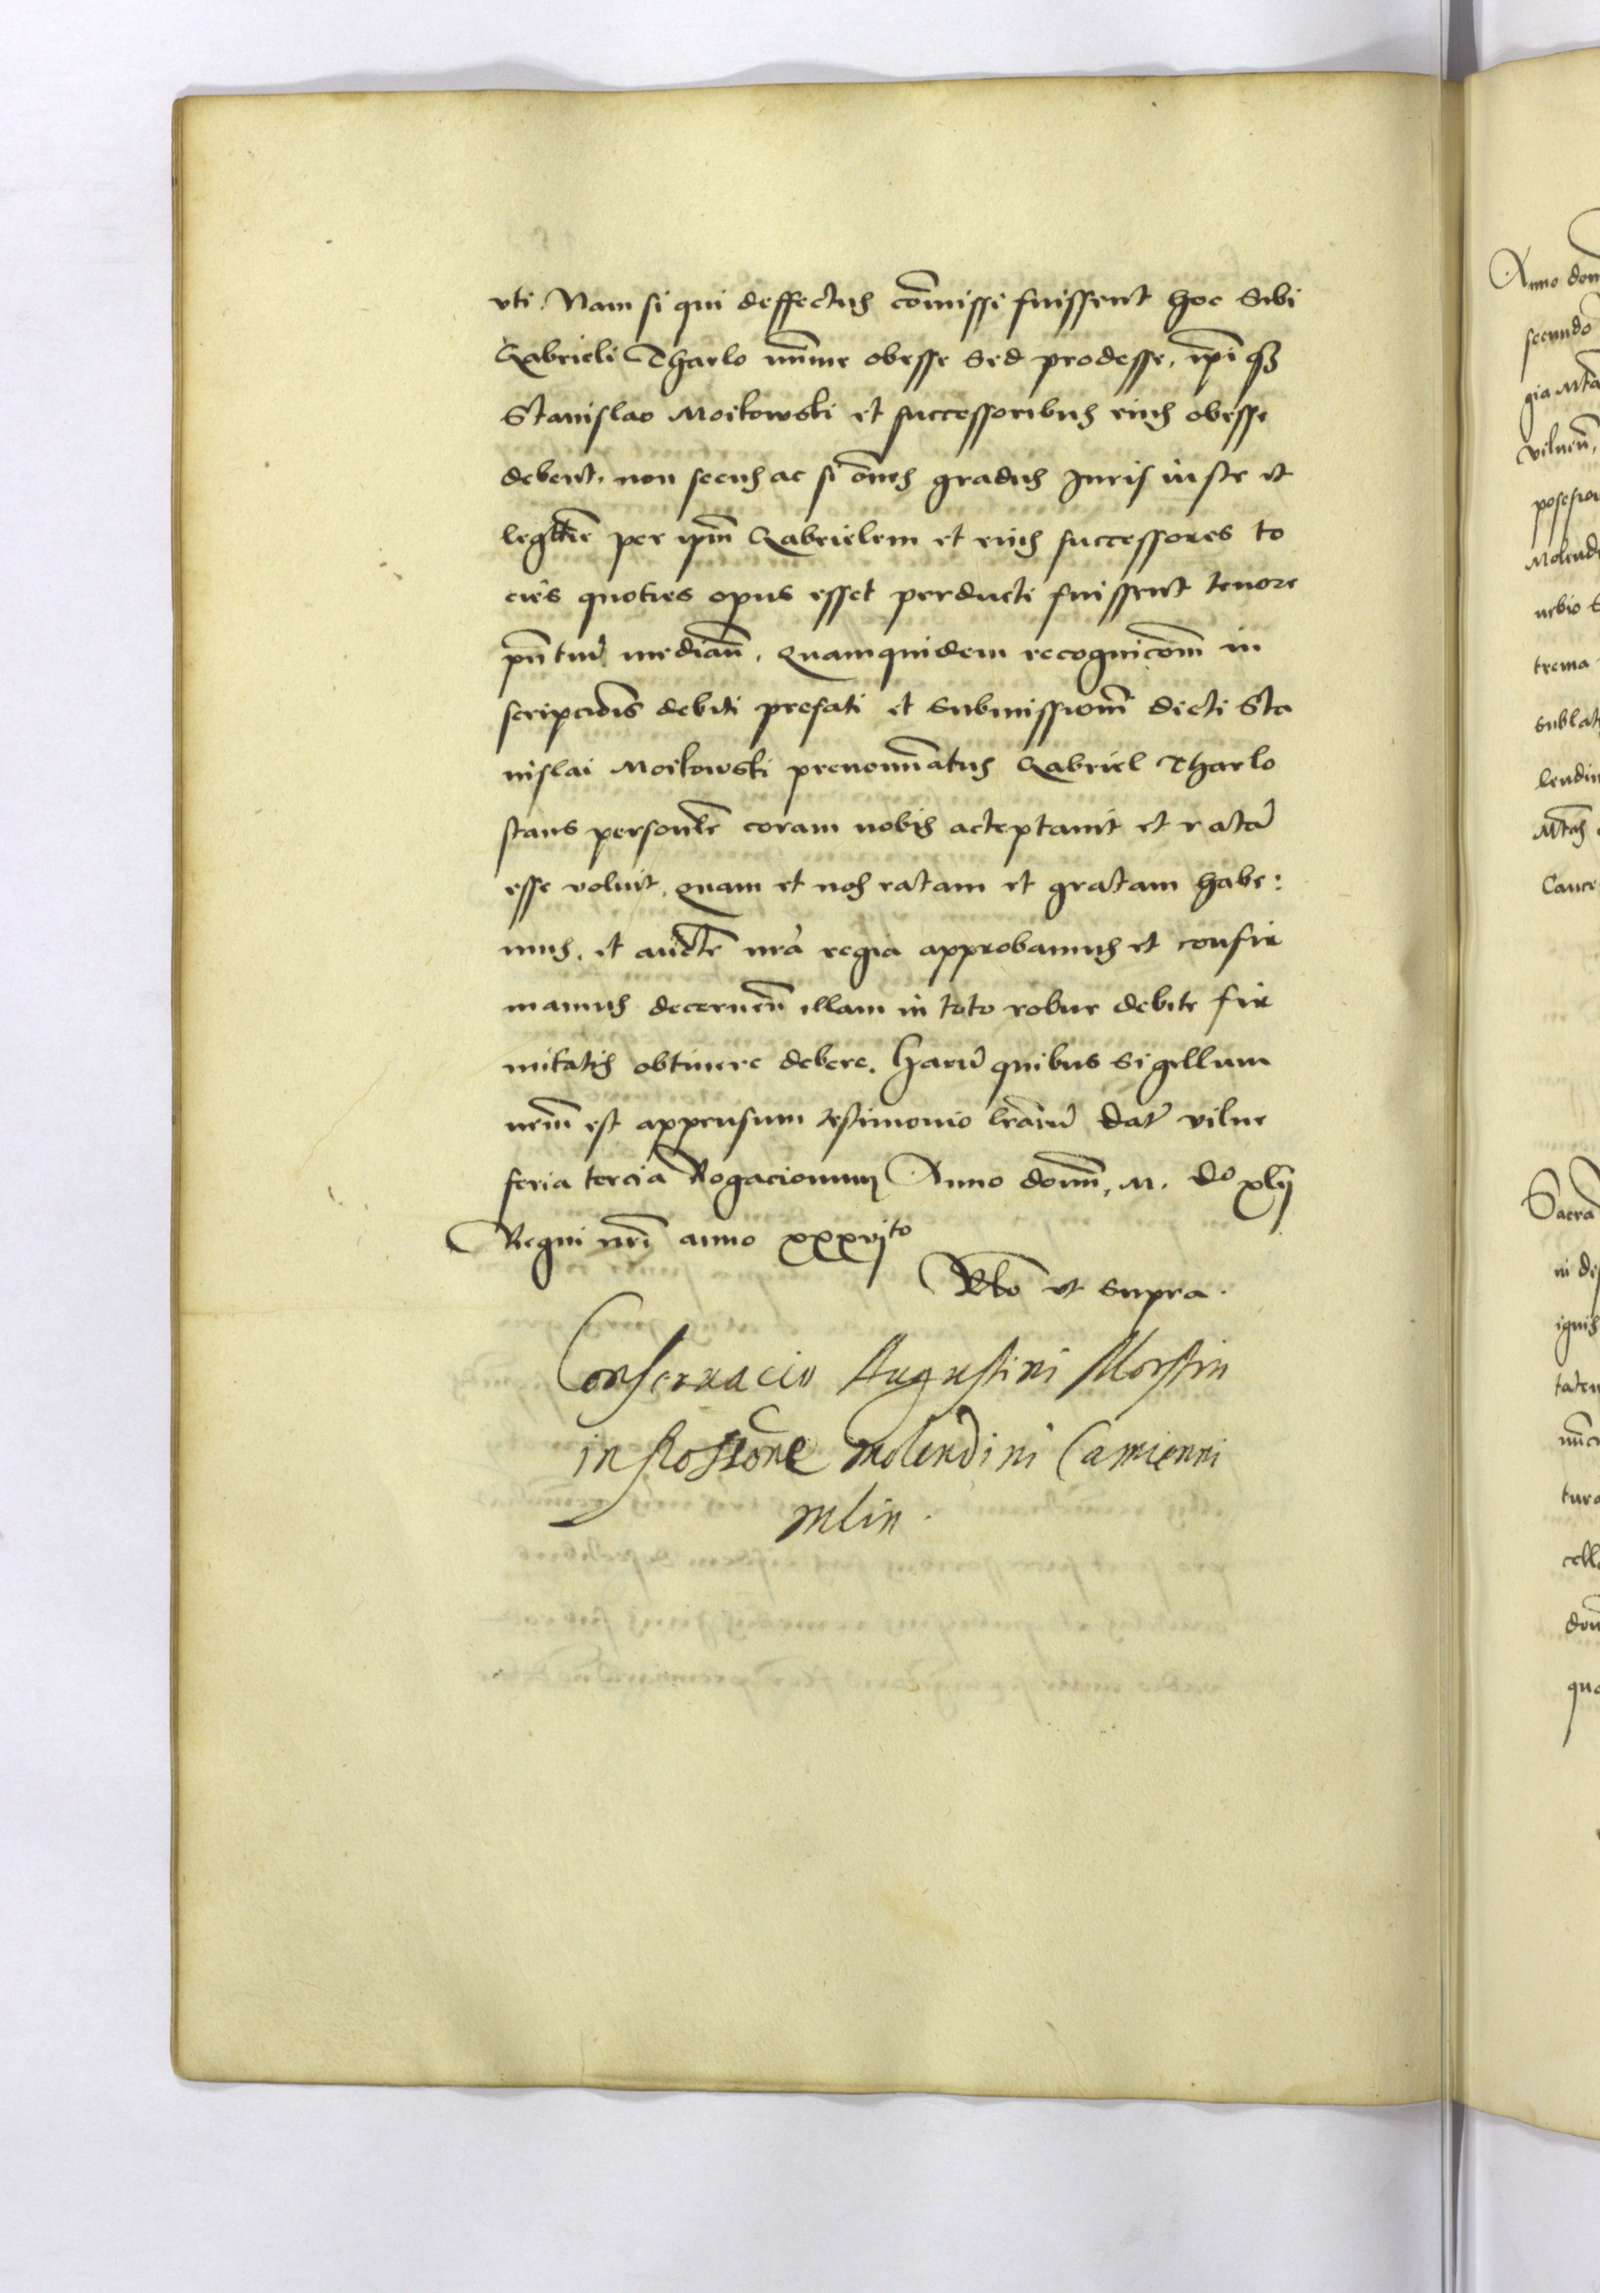 vti. Nam si qui deffectus com̄issi fuissent hoc sibi
Gabrieli Tharlo minime obesse sed prodesse, ip̄i qz
Stanislao Moikowski et successoribus eius obesse
debent. non secus ac si om̄es gradus Juris iuste et
legittīe per ip̄m Gabrielem et eius successores to
cies quoties opus esset perducti fuissent tenore
pn̄tiū median̄. Quamquidem recognicōm in
scripcīōis debiti prefati et submissionē dicti Sta
nislai Moikowski prenominatus Gabriel Tharlo
stans personl̄r coram nobis acceptauit et ratā
esse voluit, quam et nos ratam et gratam habe:
mus. et auctē nr̄a regia approbamus et confir
mamus decernen̄ illam in toto robur debite fir
mitatis obtinere debere. Harū quibus sigillum
nr̄m est appensum testimonio lr̄arū Dat̄ vilne
feria tercia Rogacionum Anno domī. M. do xlij
Regni nrī anno xxxvjto
Rl̄o vt supra.
Conseruacio Augustini Morstin
in possionē molendini Camienni
mlin.
Anno dom
secundo
gia Mta
vilnen̄,
posesion
Molend
trema
sublat
lendin
Mtas
Cance
Sacra
ni de
ignis
taten
tura
cell
qua